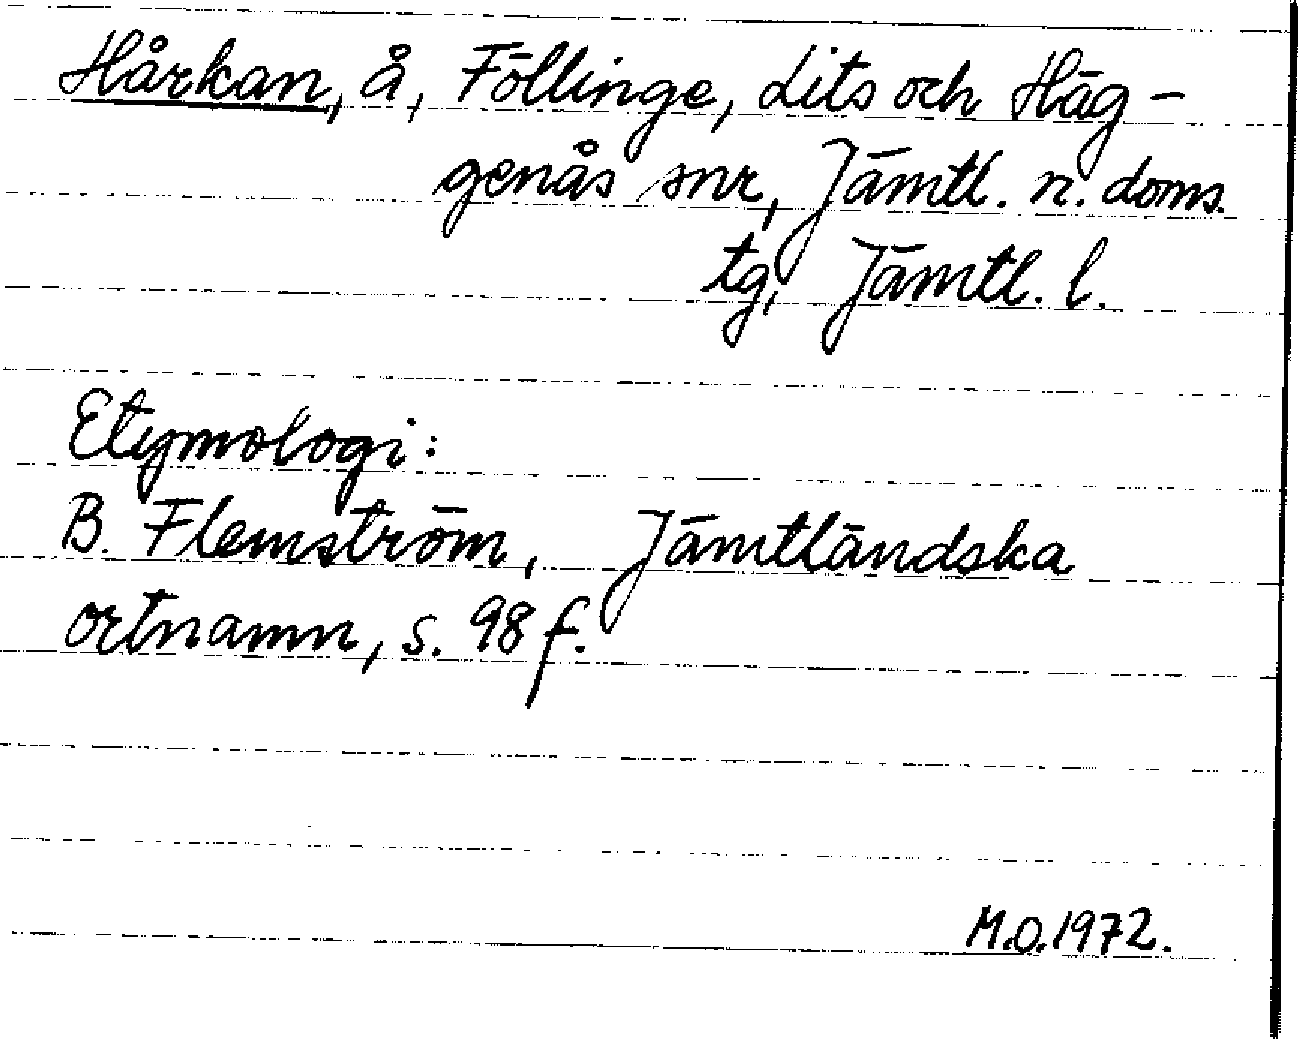 Hårkan, å, Föllinge, Lits och Häg-
genås snr, Jämtl. n. doms.
tg, Jämtl. l.
Etymologi:
B. Flemström, Jämtländska
ortnamn, s. 98 f.
M.O. 1972.